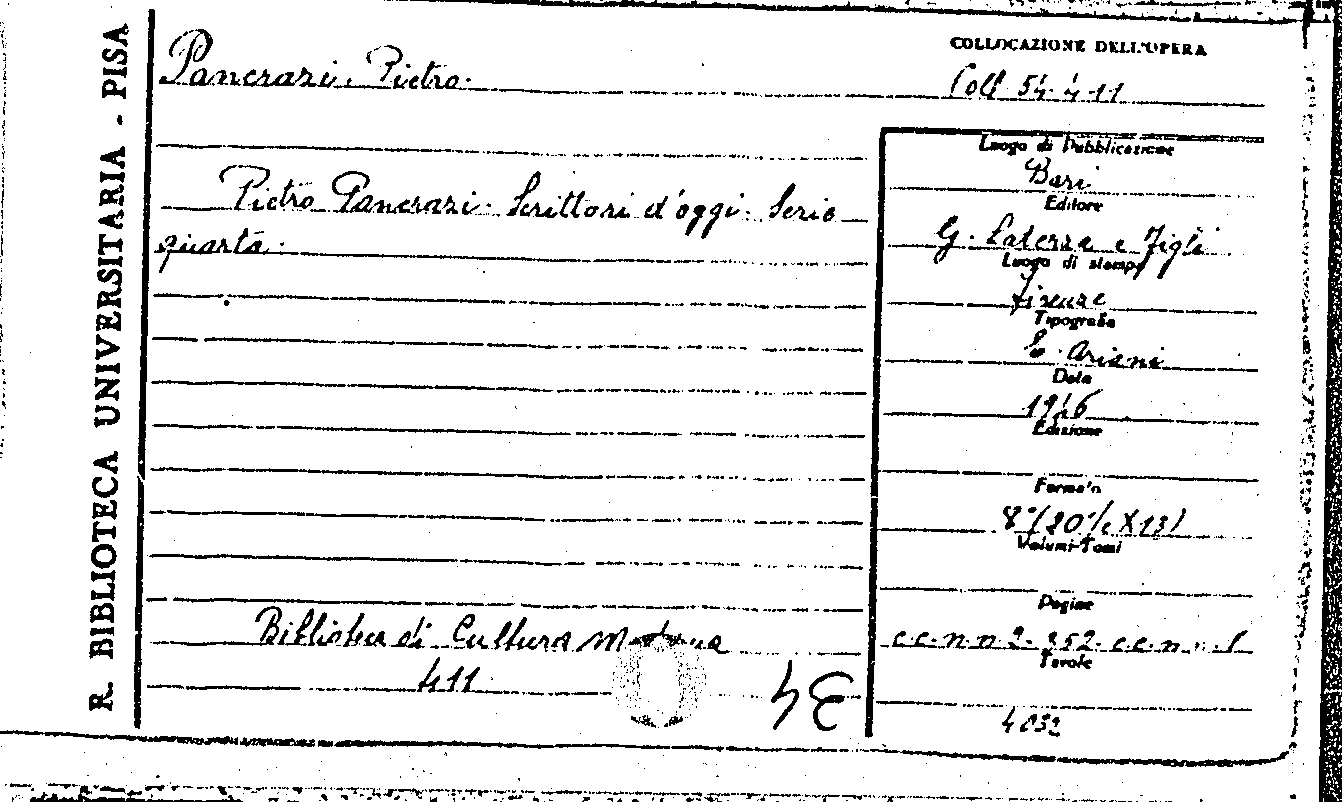 R. BIBLIOTECA UNIVERSITARIA - PISA
Pancrazi, Pietro.
COLLOCAZIONE DELL'OPERA
Coll. 54. 4. 11
Pietro Pancrazi. Scrittori d'oggi. Serie
quarta.
Luogo di Pubblicazione
Bari
Editore
G. Laterza e Figli
Luogo di stampa
Firenze
Tipografia
E. Ariani
Data
1946
Edizione
Formato
8° (20½ X 13)
Volumi-Tomi
Pagine
c.c. n n 2. 352. c.c. n n. 1
Tavole
Biblioteca di Cultura Moderna
411
4052